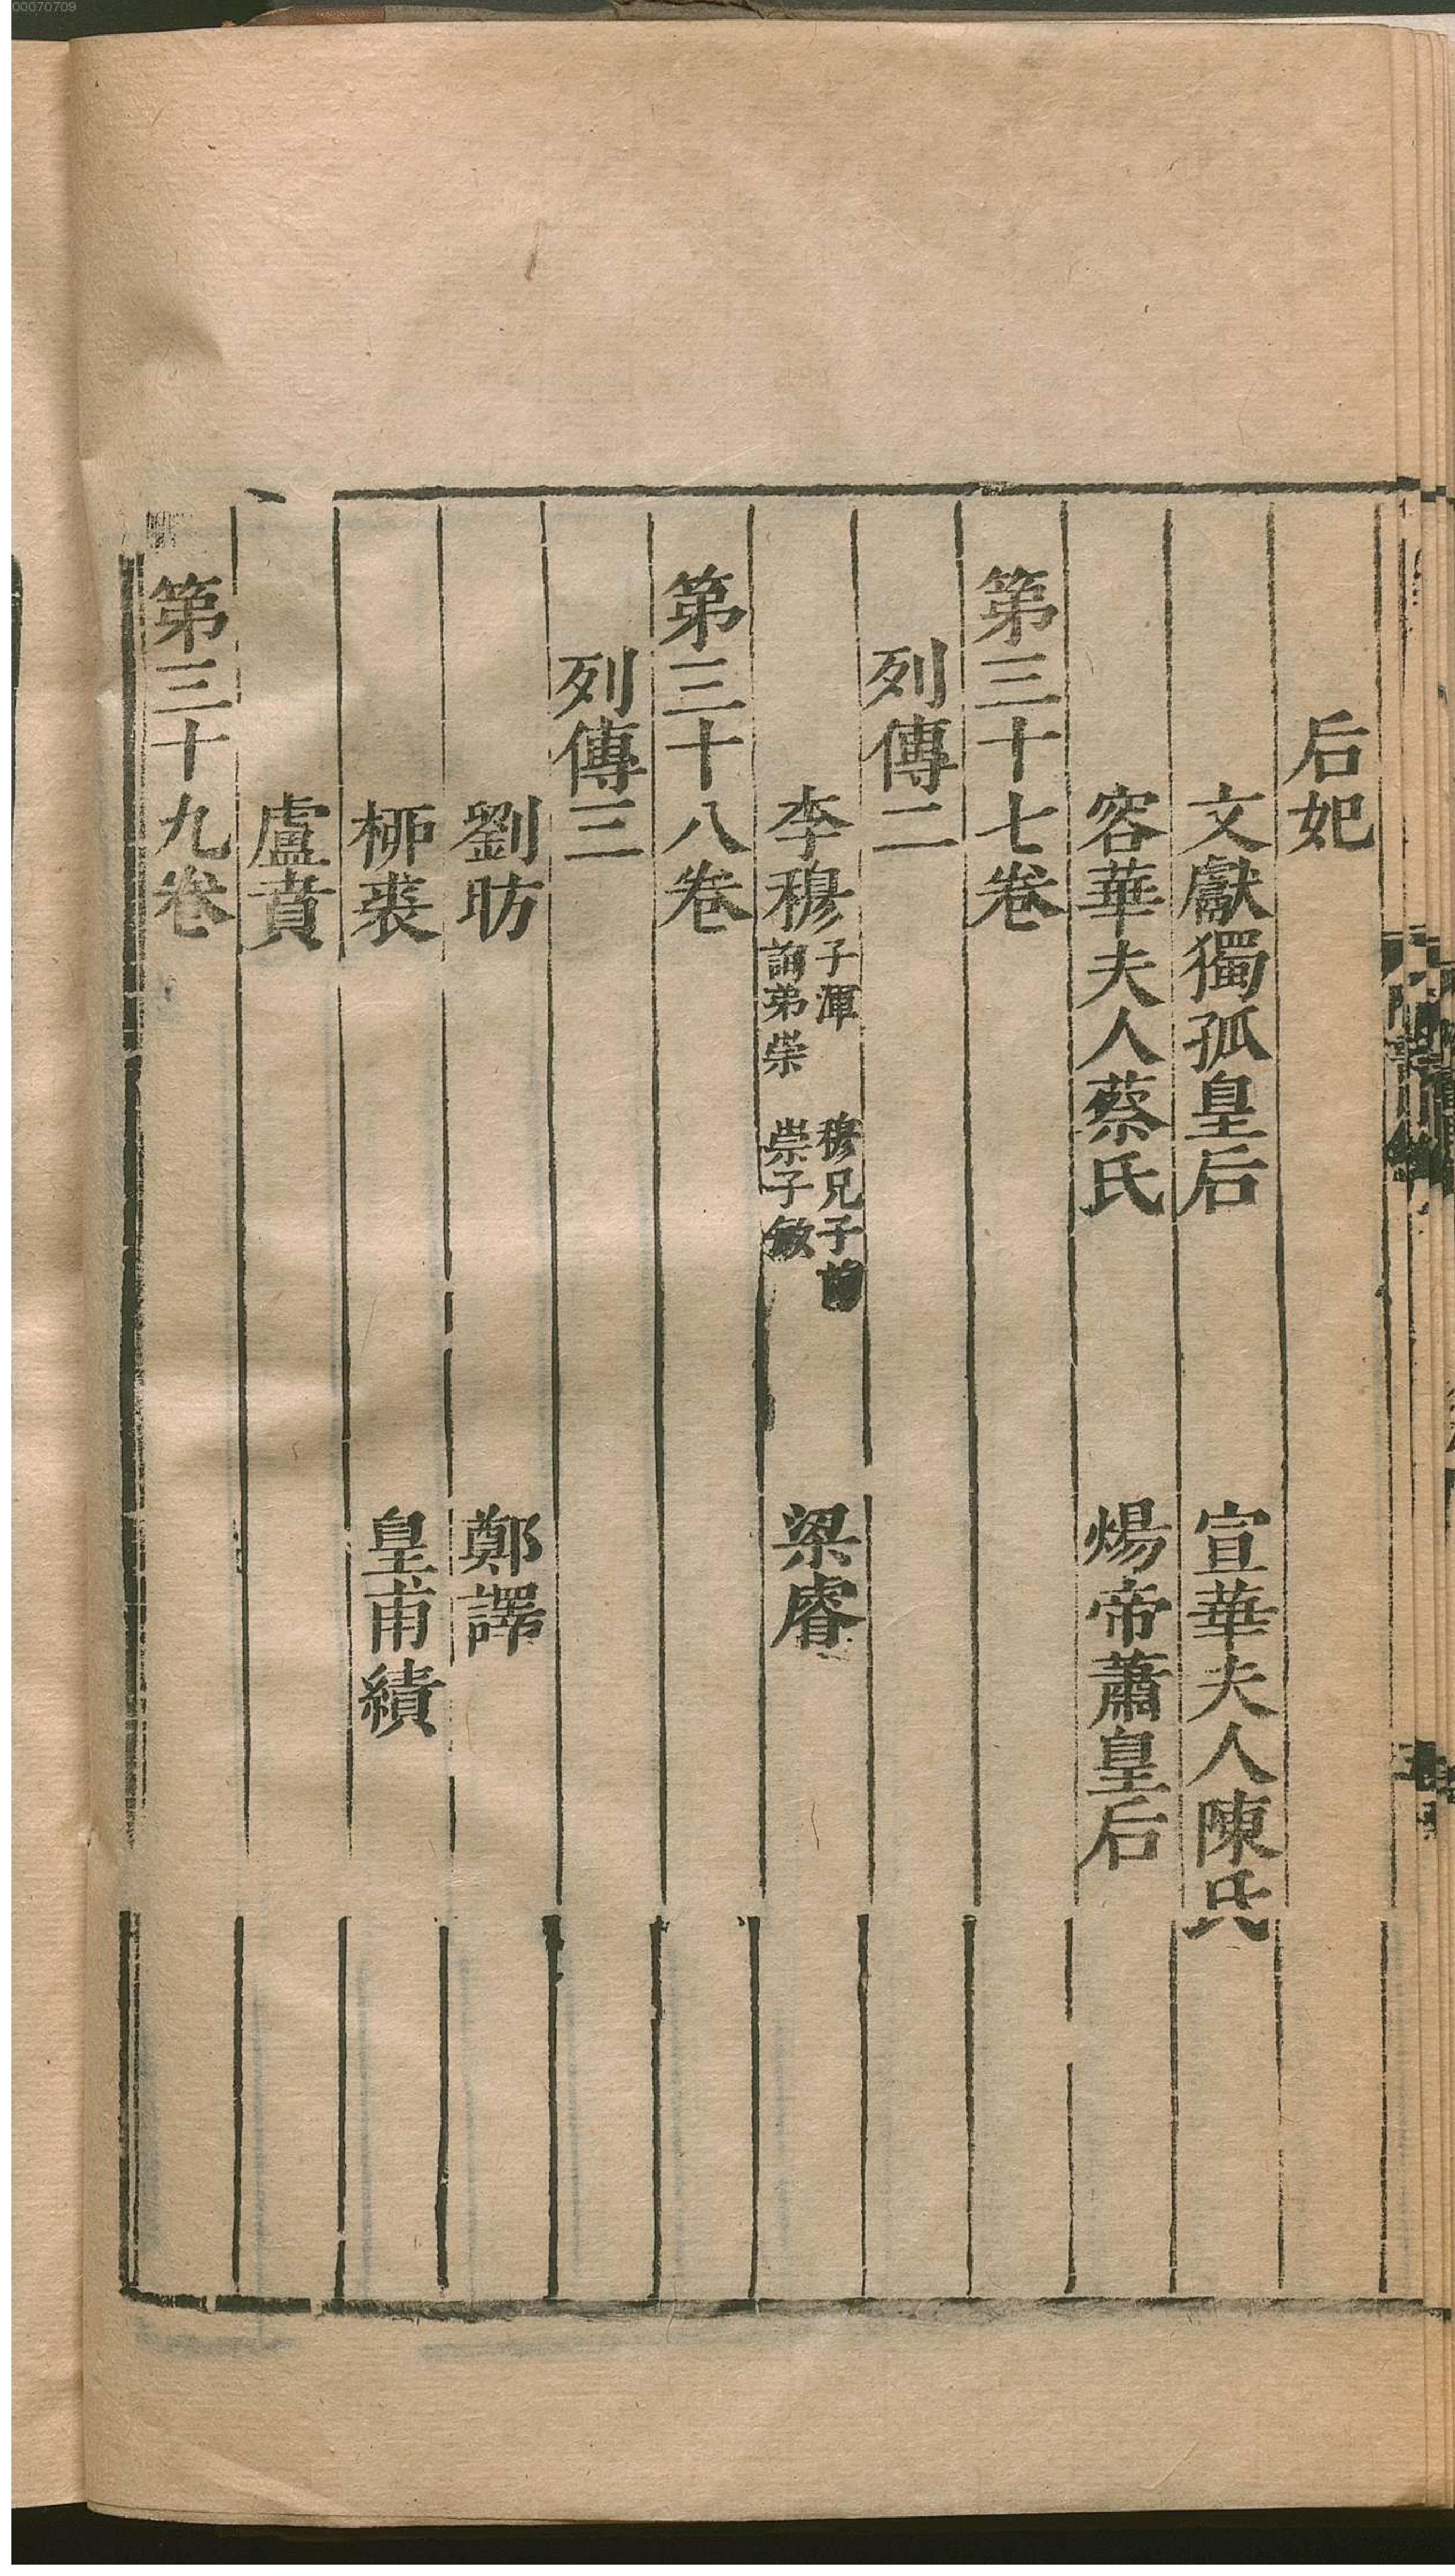 00070709
后妃
文獻獨孤皇后　宣華夫人陳氏
容華夫人蔡氏　煬帝蕭皇后
第三十七卷
列傳二
李穆　子渾　穆兄子詢　詢弟崇　崇子敏　梁睿
第三十八卷
列傳三
劉昉　鄭譯
桺裘　皇甫績
盧賁
第三十九卷